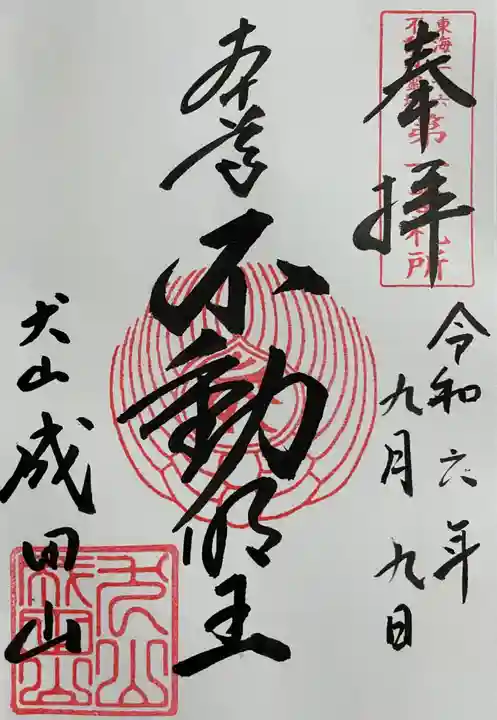 奉拝
令和六年
九月九日
本尊
不動明王
犬山
成田山
東海
札所